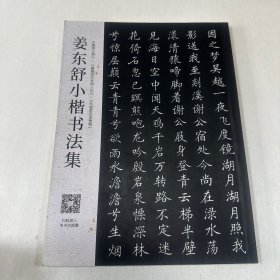 姜东舒小楷书法集
因之梦吴越一夜飞度镜湖月湖月照我
影送我至剡溪谢公宿处今尚在渌水荡
漾清猿啼脚着谢公屐身登青云梯半壁
见海日空中闻天鸡千岩万转路不定迷
花倚石忽已暝熊咆龙吟殷岩泉慄深林
兮惊层巅云青青兮欲雨水澹澹兮生烟